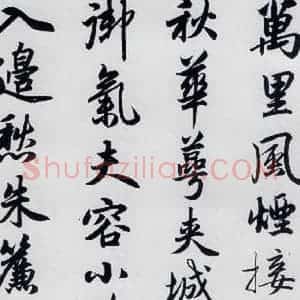 萬里風煙接
秋華萼夾城
御氣夫容小
入邊愁朱簾
Shufaziliao.com